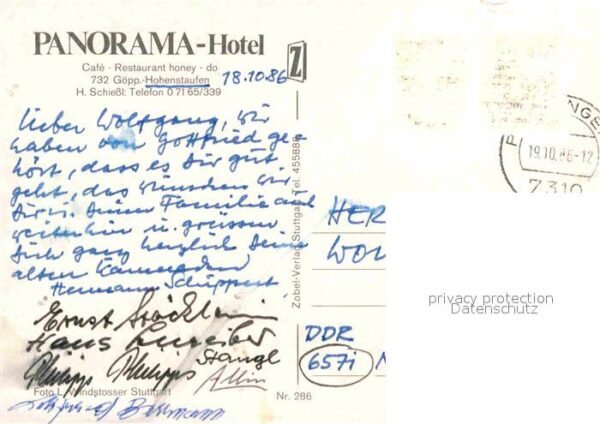 PANORAMA-Hotel
Café - Restaurant honey - do
732 Göpp.-Hohenstaufen
H. Schießl: Telefon 0 71 65/339
18.10.86
Lieber Wolfgang, wir
haben von Gottfried ge-
hört, dass es Dir gut
geht, das wünschen wir
Dir u. Deiner Familie auch
weiterhin u. grüssen
Dich ganz herzlich Deine
alten Kameraden
Hermann Schuppert
Ernst Stöcklein
Hans Schreiber
Stangl
Philipp Philipps
Foto L. Windstosser Stuttgart
Bellmann
Nr. 286
Zobel-Verlag Stuttgart, Tel. 455886
Z
19.10.86-12
7310
HER
WOL
privacy protection
Datenschutz
DDR
657i